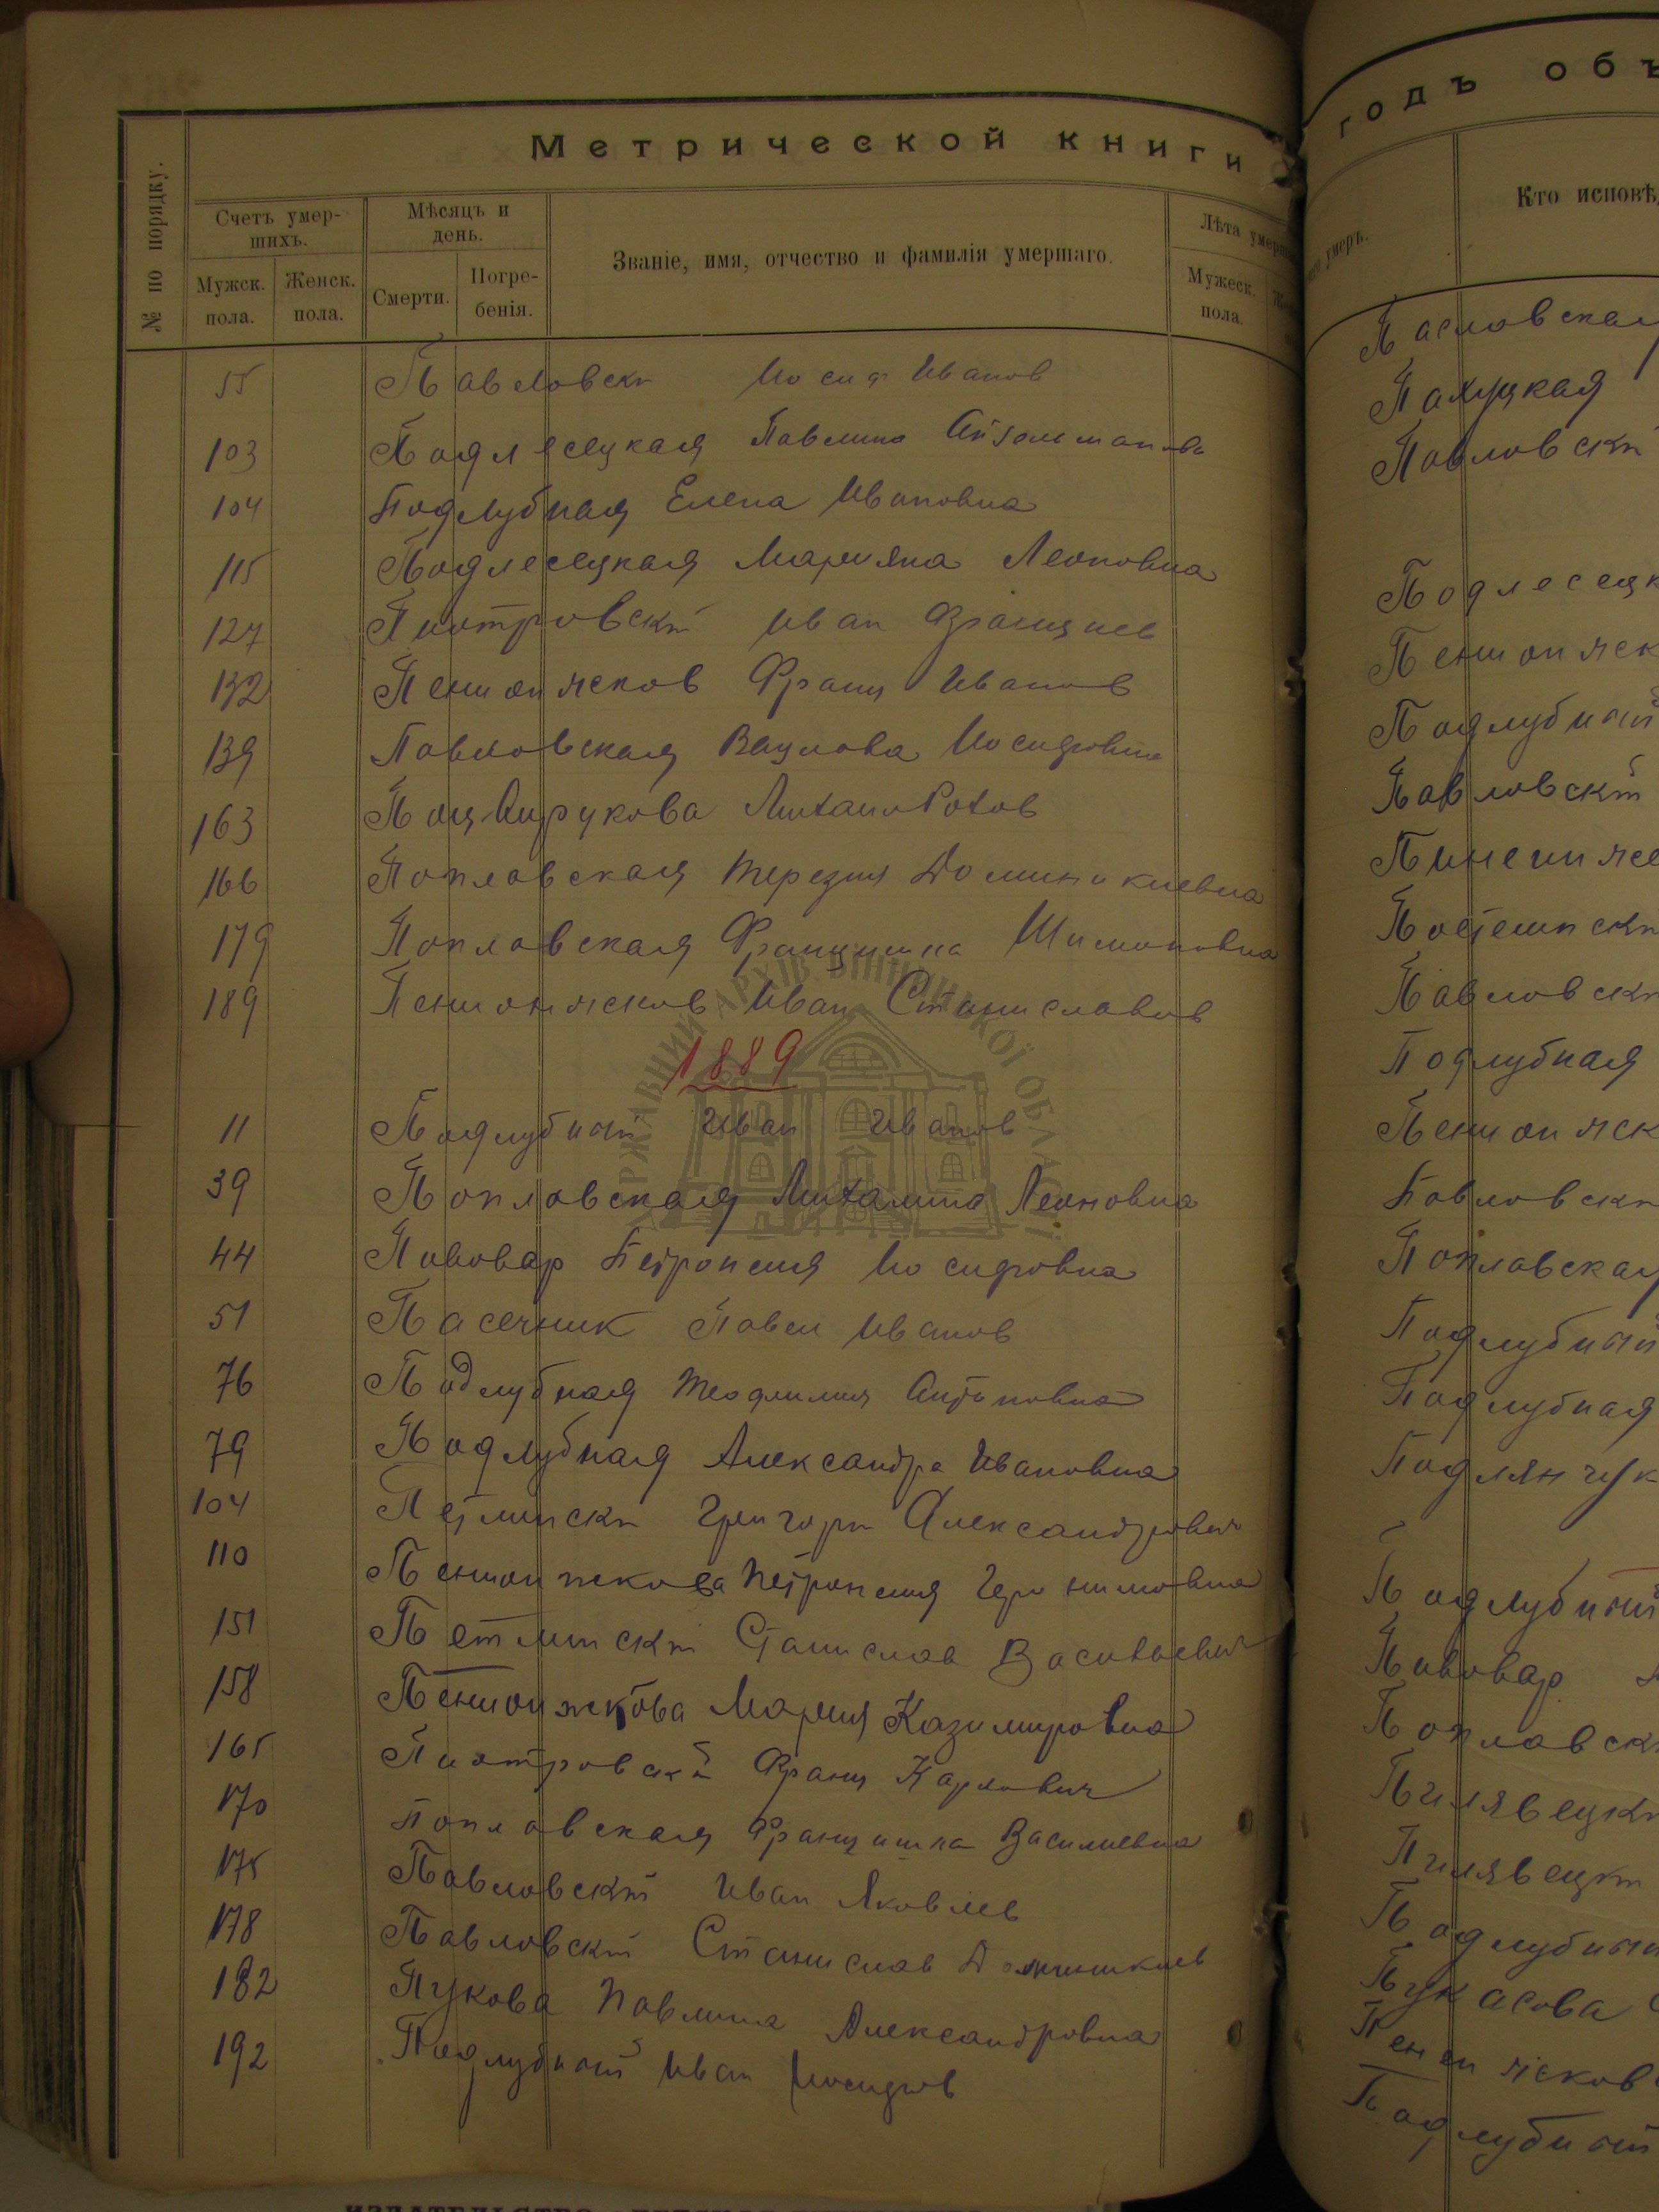 Метрической книги
№ по порядку.
Счетъ умер-
шихъ.
Мѣсяцъ и
день.
Званіе, имя, отчество и фамилія умершаго.
Лѣта
Мужск.
пола.
Женск.
пола.
Смерти.
Погре-
бенія.
Мужеск.
пола.
55 Павловски Иосиф Иванов
103 Подлесецкая Павлина
104 Подлубная Елена Ивановна
115 Подлесецкая Марияна Леоновна
127 Пиотровскі Иван
132 Пеншонжков Франц Иванов
139 Павловская Вацлава Иосифовна
163
166 Поплавская Терезия Доминикиевна
179 Поплавская Францишка Шимоновна
189 Пеншонжков Иван Станиславов
1889
11 Подлубный Иван Иванов
39 Поплавская Михалина Леоновна
44 Пивовар Петронеля Иосифовна
51 Пасечник Павел Иванов
76 Подлубная Теофилия Антоновна
79 Подлубная Александра Ивановна
104 Петлински Григори Александрович
110 Пеншонжкова Петронеля Геронимовна
151 Петлински Станислав Васильевич
158 Пеншонжкова Мария Казимировна
165 Пиотровский Франц Карлович
170 Поплавская Францишка Василиевна
175 Павловскі Иван Яковлев
178 Павловскі Станислав Доминикиев
182 Пукова Павлина Александровна
192 Подлубный Иван Иосифов
годъ объ
умеръ.
Кто исповѣд
Пахуцкая
Павловскі
Подлесецк
Пеншонжск
Подлубный
Павловскі
Павловски
Подлубная
Пеншонжск
Павловски
Поплавская
Подлубный
Подлубная
Подлянчук
Подлубный
Пивовар
Поплавски
Пилявецки
Пилявецки
Подлубный
Пукасова
Подлубный
ДЕРЖАВНИЙ АРХІВ ВІННИЦЬКОЇ ОБЛАСТІ